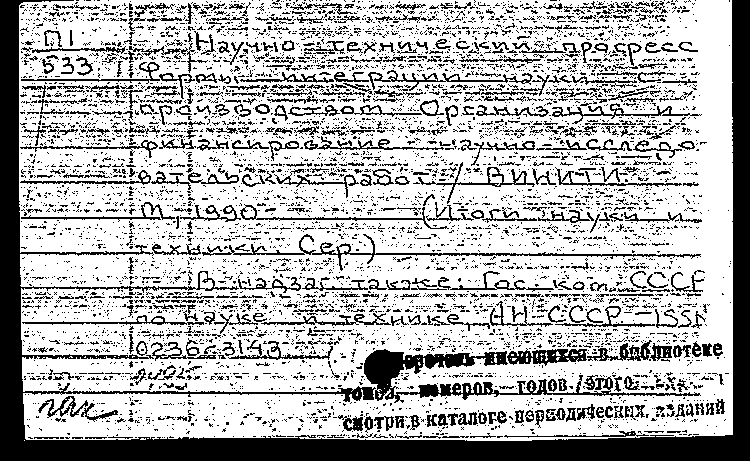 П1 Научно-технический прогресс
533 Формы интеграции науки с
производством. Организация и
финансирование научно-исследо
вательских работ ВИНИТИ
М., 1990- (Итоги науки и
техники Сер.)
В надзаг также: Гос. ком. СССР
по науке и технике, АН СССР. - ISSN
023623143
Перечень имеющихся в библиотеке
томов, номеров, годов этого
смотри в каталоге периодических изданий